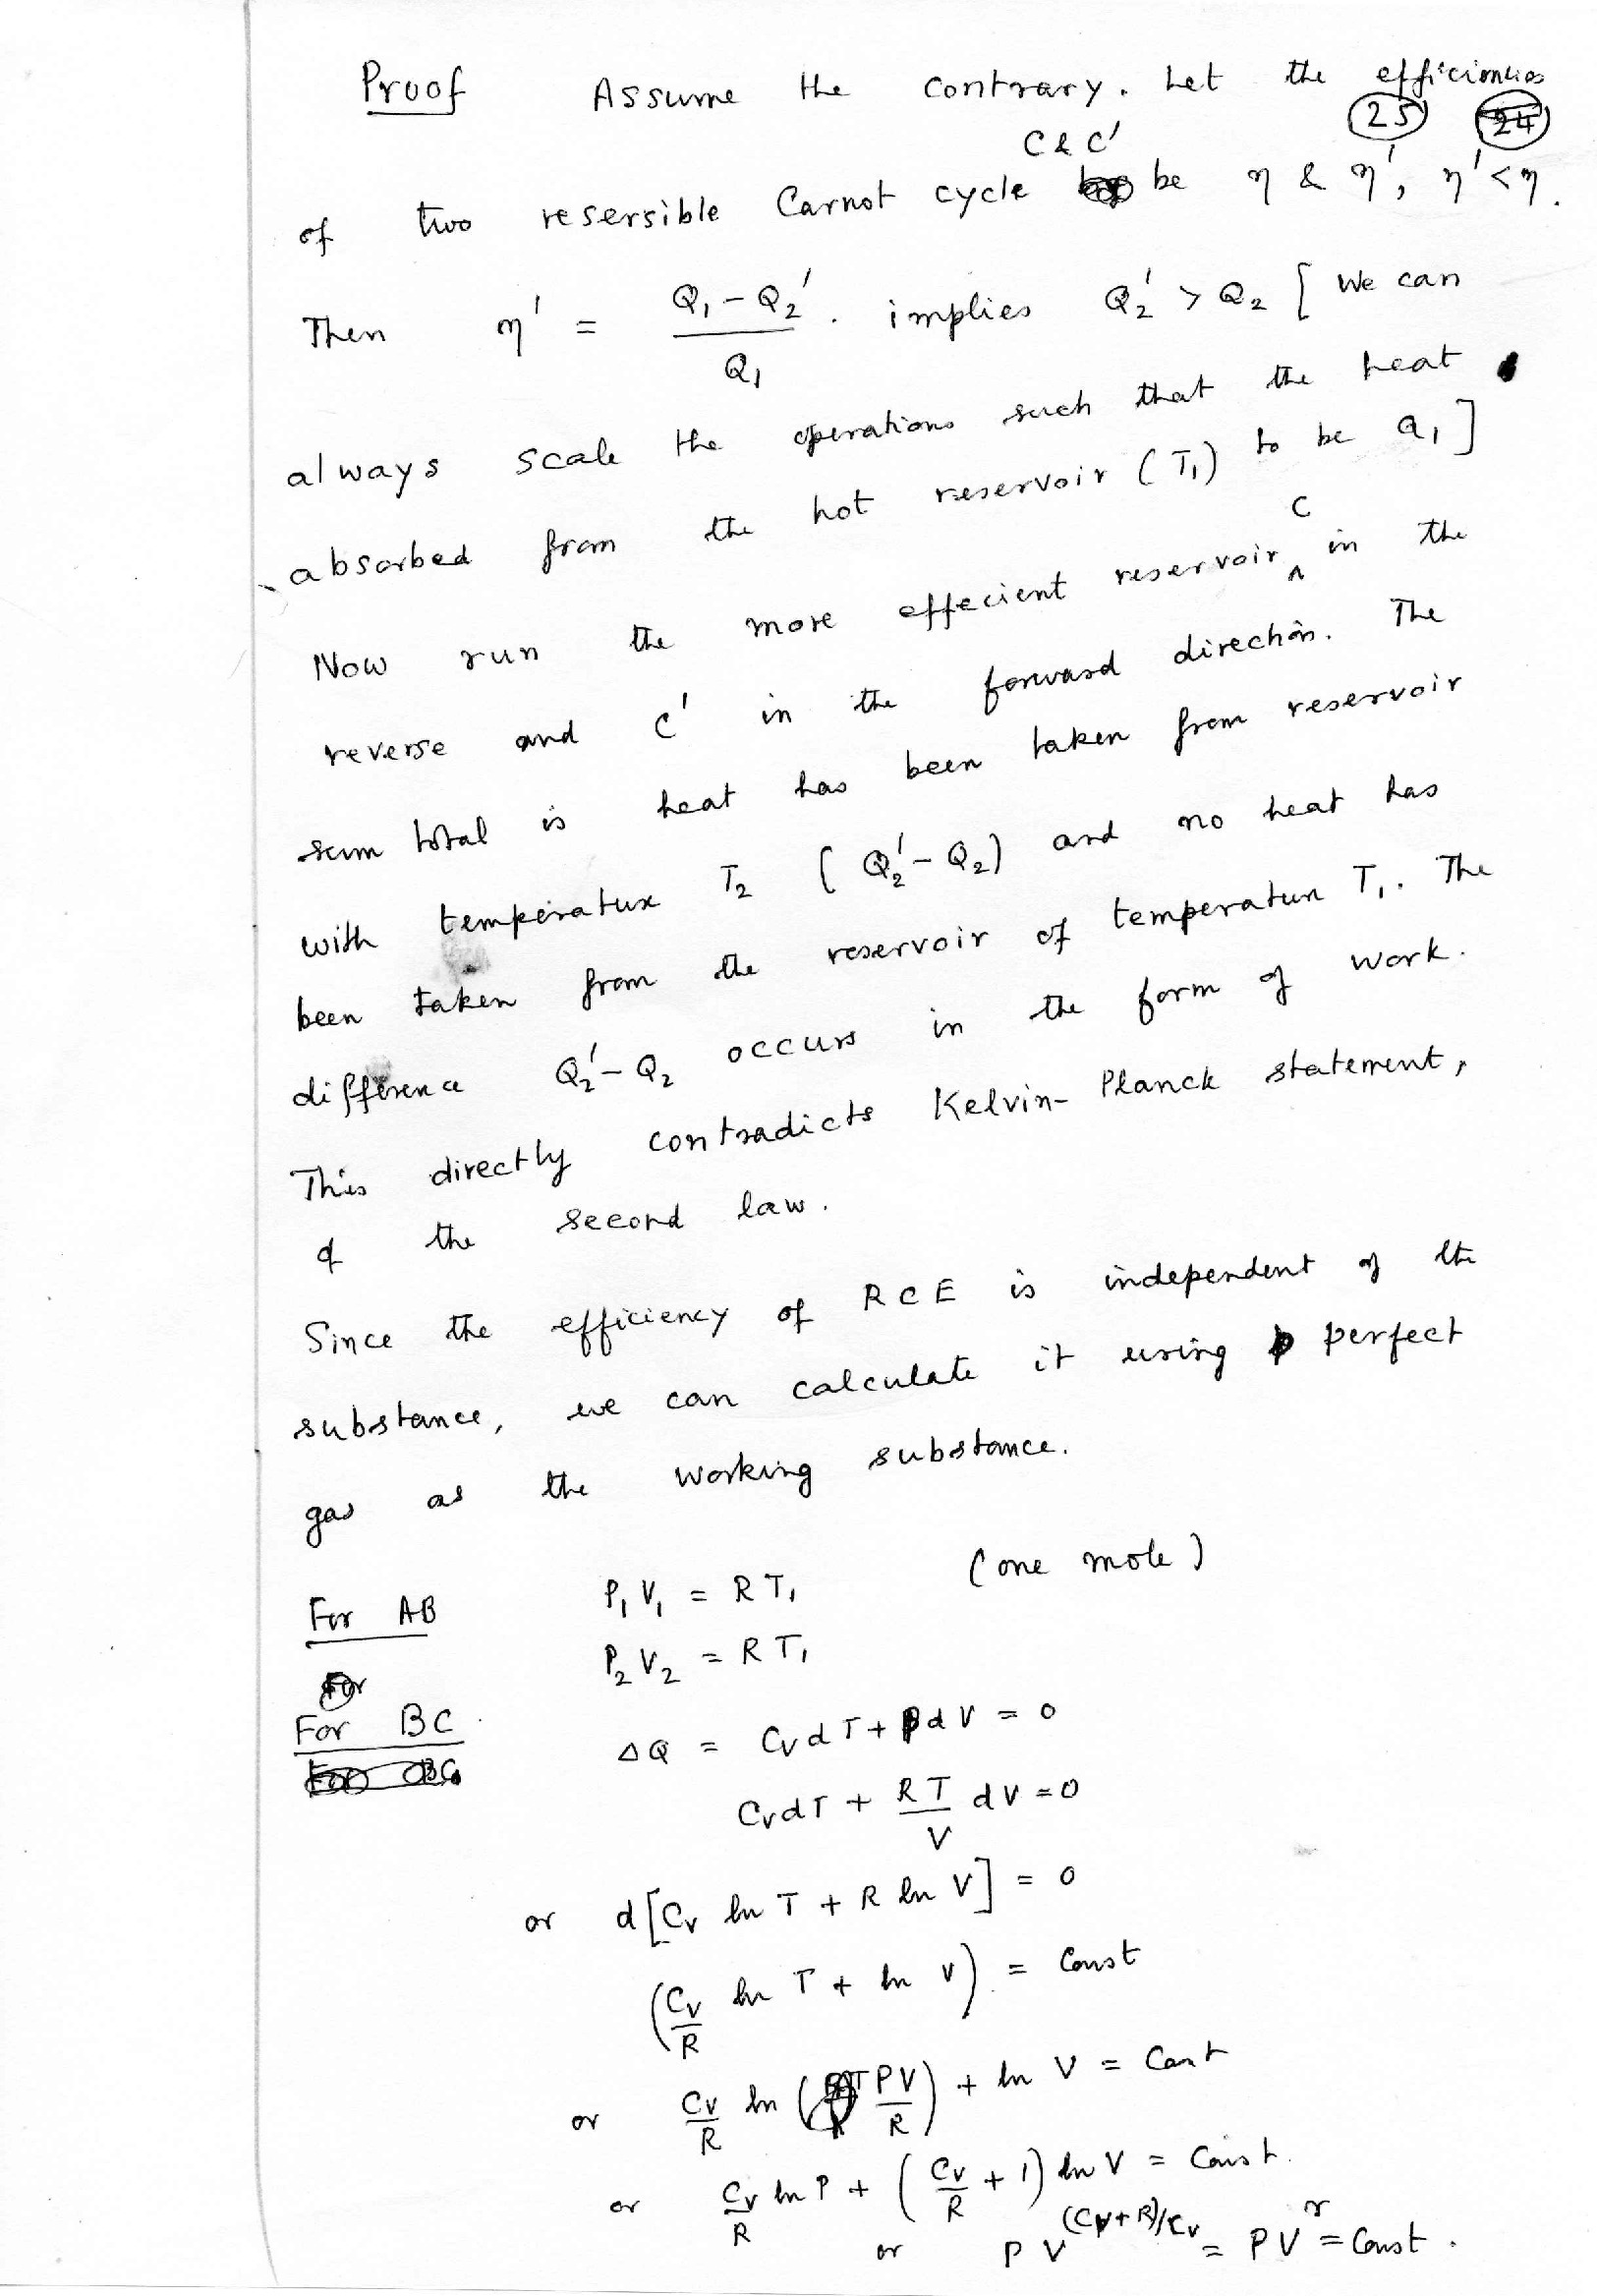 Proof Assume the contrary. Let the efficiencies
25 24
C & C'
of two resersible Carnot cycle be η & η', η' < η.
Then η' = (Q₁ - Q₂')/Q₁ . implies Q₂' > Q₂ [ We can
always scale the operations such that the heat
absorbed from the hot reservoir (T₁) to be Q₁ ]
Now run the more effecient reservoir ^C in the
reverse and C' in the forward direction. The
sum total is heat has been taken from reservoir
with temperature T₂ ( Q₂' - Q₂) and no heat has
been taken from the reservoir of temperature T₁. The
difference Q₂' - Q₂ occurs in the form of work.
This directly contradicts Kelvin-Planck statement,
of the second law.
Since the efficiency of RCE is independent of the
substance, we can calculate it using perfect
gas as the working substance.
For AB P₁V₁ = RT₁ (one mole)
P₂V₂ = RT₁
For
For BC ΔQ = CᵥdT + PdV = 0
For BC
CᵥdT + RT/V dV = 0
or d[Cᵥ ln T + R ln V] = 0
(Cᵥ/R ln T + ln V) = Const
or Cᵥ/R ln (PV/R) + ln V = Const
or Cᵥ/R ln P + (Cᵥ/R + 1) ln V = Const.
or PV^(Cᵥ+R)/Cᵥ = PV^γ = Const.